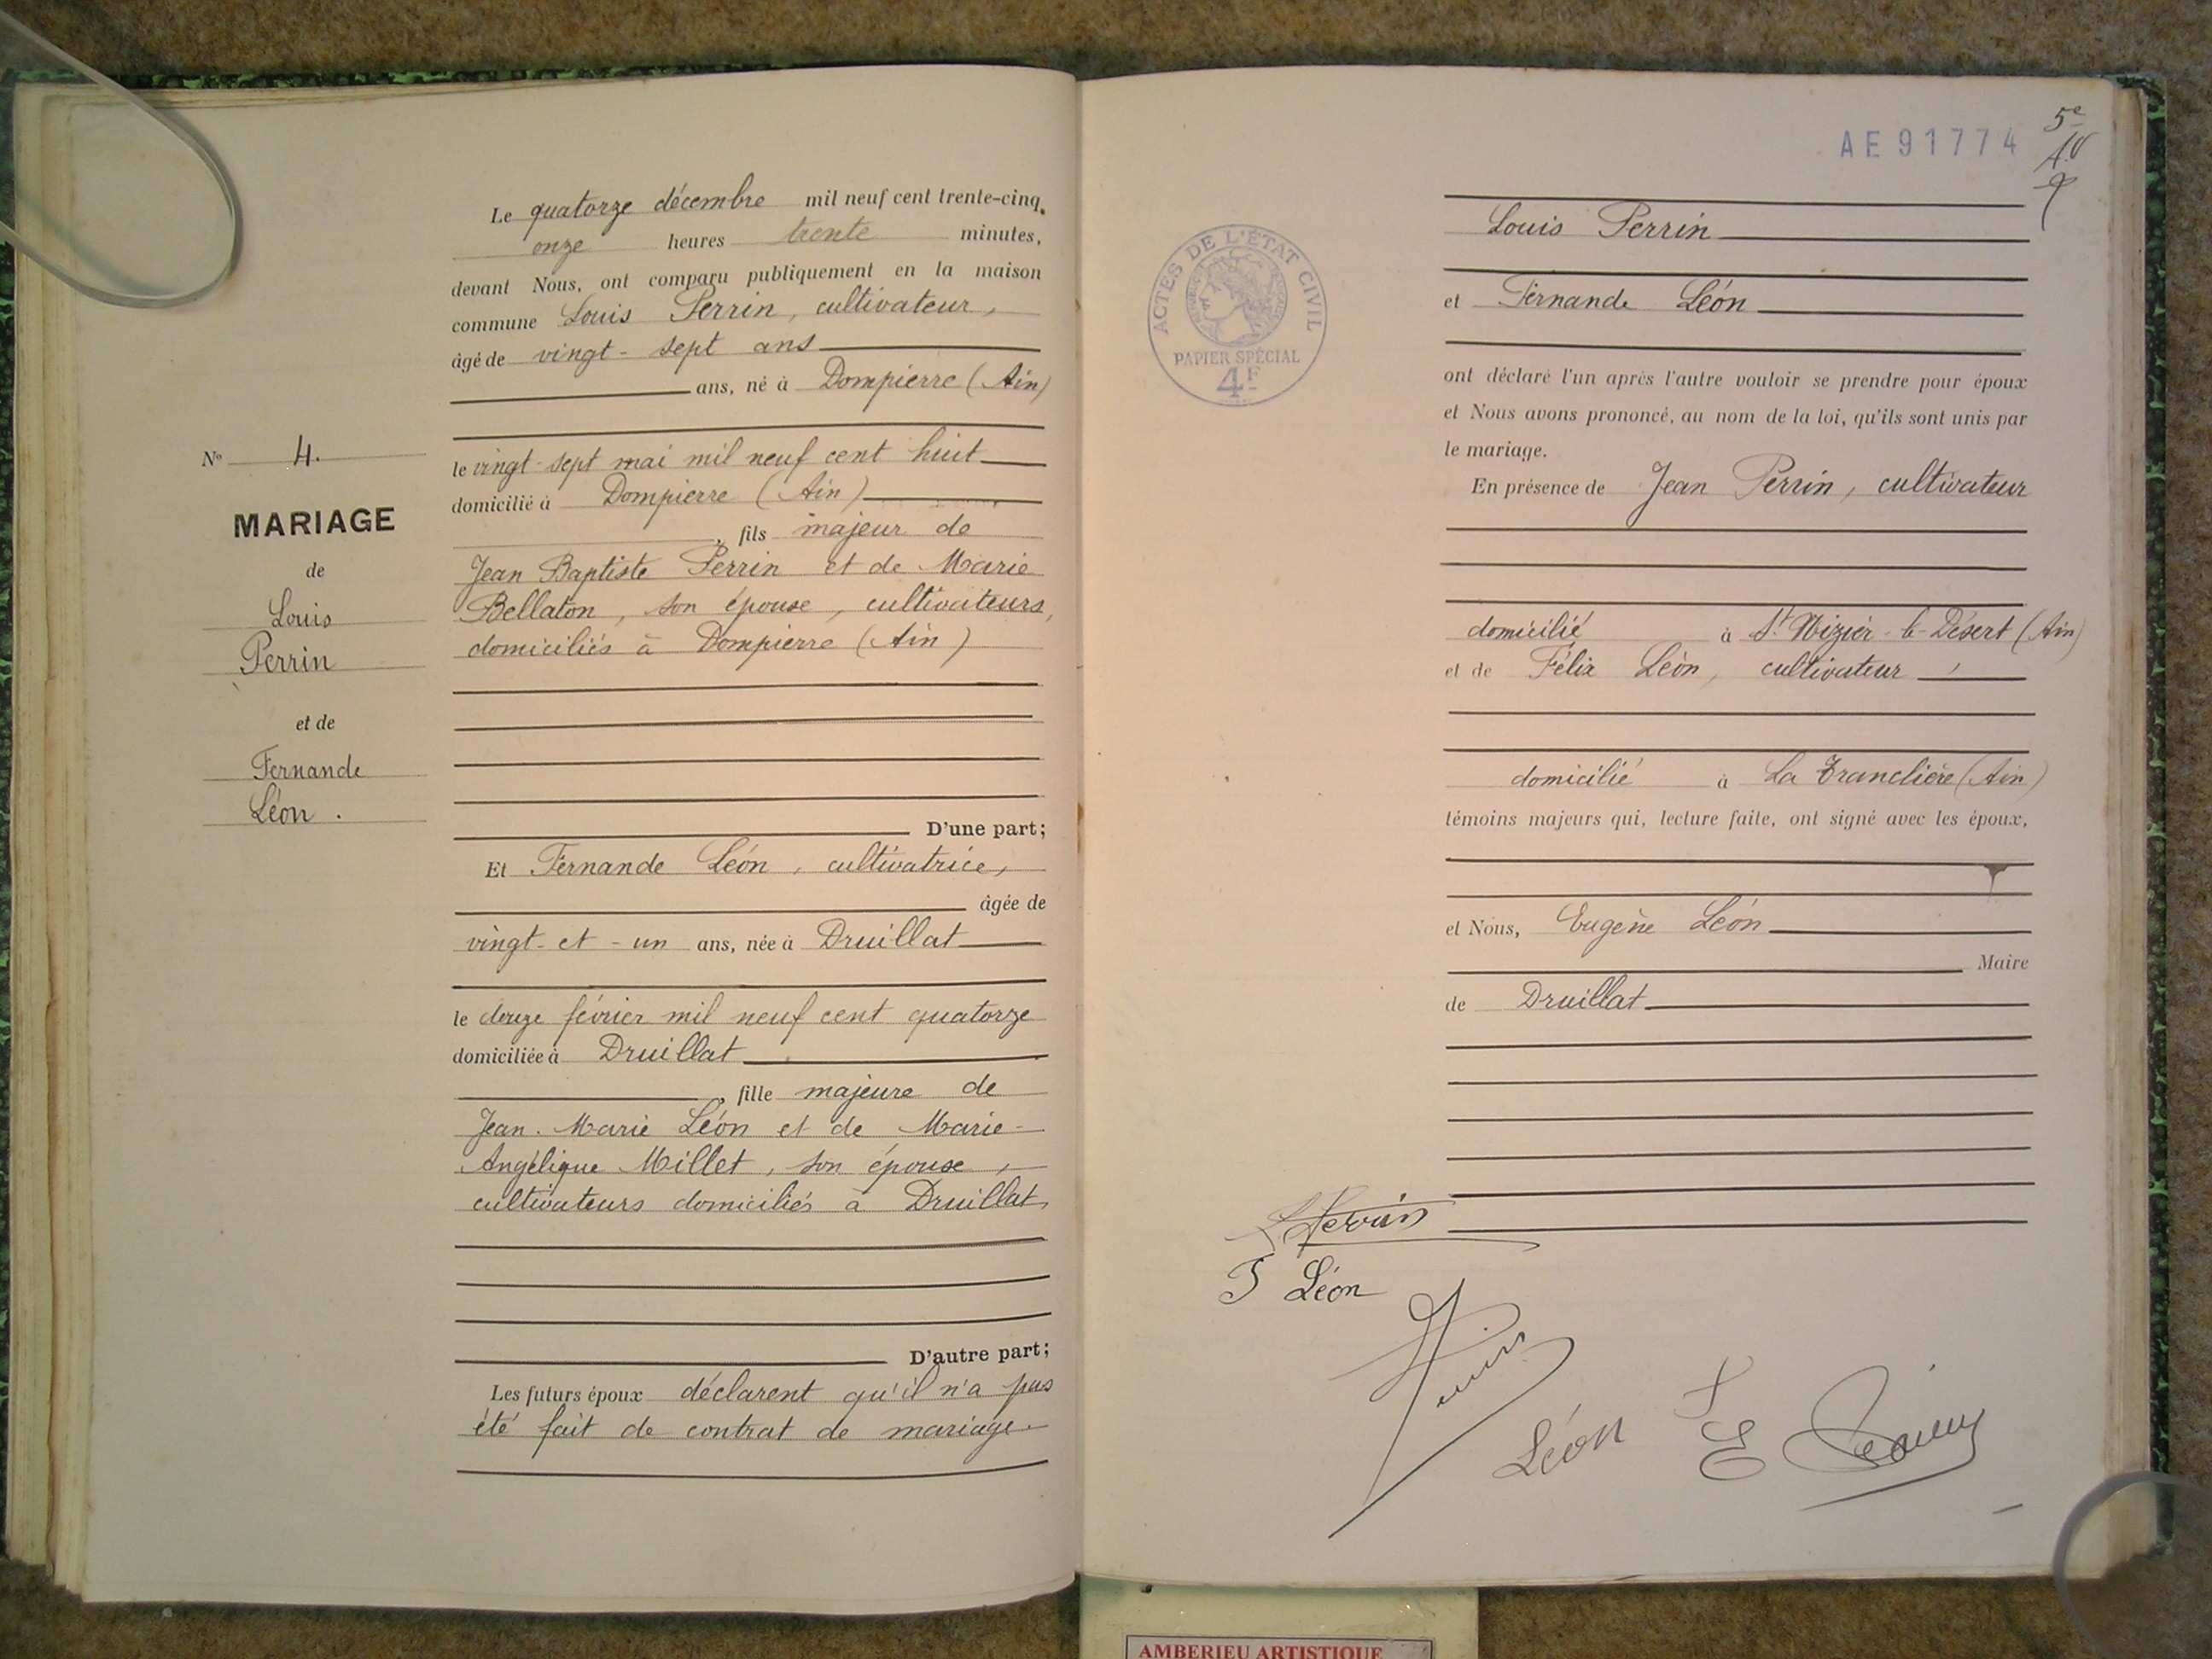 Le quatorze décembre mil neuf cent trente-cinq.
onze heures trente minutes,
devant Nous, ont comparu publiquement en la maison
commune Louis Perrin, cultivateur,
âgé de vingt-sept ans
ans, né à Dompierre (Ain)
le vingt-sept mai mil neuf cent huit
domicilié à Dompierre (Ain)
, fils majeur de
Jean Baptiste Perrin et de Marie
Bellaton, son épouse, cultivateurs,
domiciliés à Dompierre (Ain)
D'une part;
Et Fernande Léon, cultivatrice,
âgée de
vingt-et-un ans, née à Druillat
le douze février mil neuf cent quatorze
domiciliée à Druillat
, fille majeure de
Jean-Marie Léon et de Marie-
Angélique Millet, son épouse,
cultivateurs domiciliés à Druillat
D'autre part;
Les futurs époux déclarent qu'il n'a pas
été fait de contrat de mariage
No 4.
MARIAGE
de
Louis
Perrin
et de
Fernande
Léon.
AE 91774
5e
ACTES DE L'ÉTAT CIVIL
PAPIER SPÉCIAL
4F
Louis Perrin
et Fernande Léon
ont déclaré l'un après l'autre vouloir se prendre pour époux
et Nous avons prononcé, au nom de la loi, qu'ils sont unis par
le mariage.
En présence de Jean Perrin, cultivateur
domicilié à St Nizier-le-Désert (Ain)
et de Félix Léon, cultivateur,
domicilié à La Tranclière (Ain)
témoins majeurs qui, lecture faite, ont signé avec les époux,
et Nous, Eugène Léon
Maire
de Druillat
L Perrin
F Léon
Perrin
Léon F
E Léon
AMBERIEU ARTISTIQUE